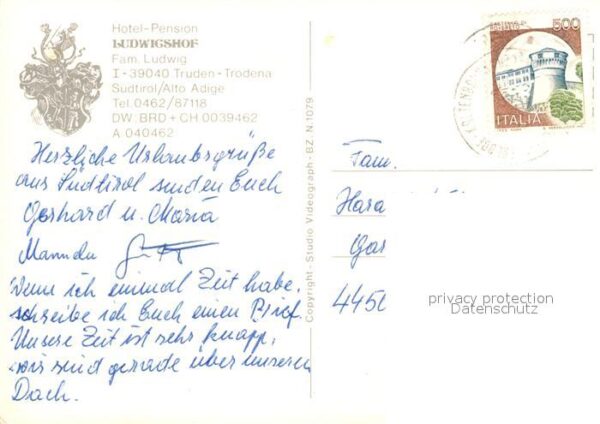 Hotel-Pension
LUDWIGSHOF
Fam. Ludwig
I-39040 Truden-Trodena
Südtirol/Alto Adige
Tel. 0462/87118
DW: BRD+CH 0039462
A 040462
Herzliche Urlaubsgrüße
aus Südtirol senden Euch
Gerhard u. Maria
Wenn ich einmal Zeit habe,
schreibe ich Euch einen Brief.
Unsere Zeit ist sehr knapp,
wir sind gerade über unserem
Dach.
Copyright - Studio Videograph - BZ. N.1079
500
ITALIA
Fam.
Hara
Gar
4450
privacy protection
Datenschutz